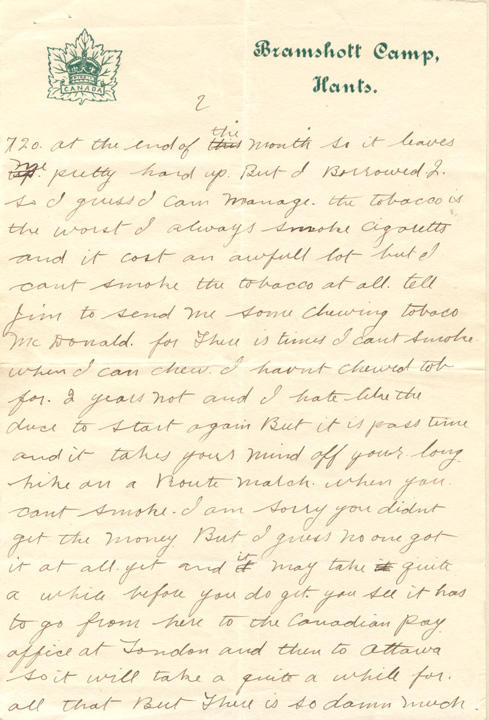 CANADA
Bramshott Camp,
Hants.
2
720. at the end of the month so it leaves
me pretty hard up. But I Borrowed 2.
so I guess I can manage. the tobacco is
the worst I always smoke cigaretts
and it cost an awfull lot but I
cant smoke the tobacco at all. tell
Jim to send me some chewing tobaco
Mc Donald. for There is times I cant smoke
when I can chew. I havnt chewed tob
for. 2 years not and I hate like the
duce to start again But it is pass time
and it takes your mind off your long
hike on a Route march. when you
cant smoke. I am sorry you didnt
get the money. But I guess no one got
it at all yet and it may take quite
a while before you do get you see it has
to go from here to the Canadian pay
office at London and then to Ottawa
so it will take a quite a while for.
all that But There is so damn much.